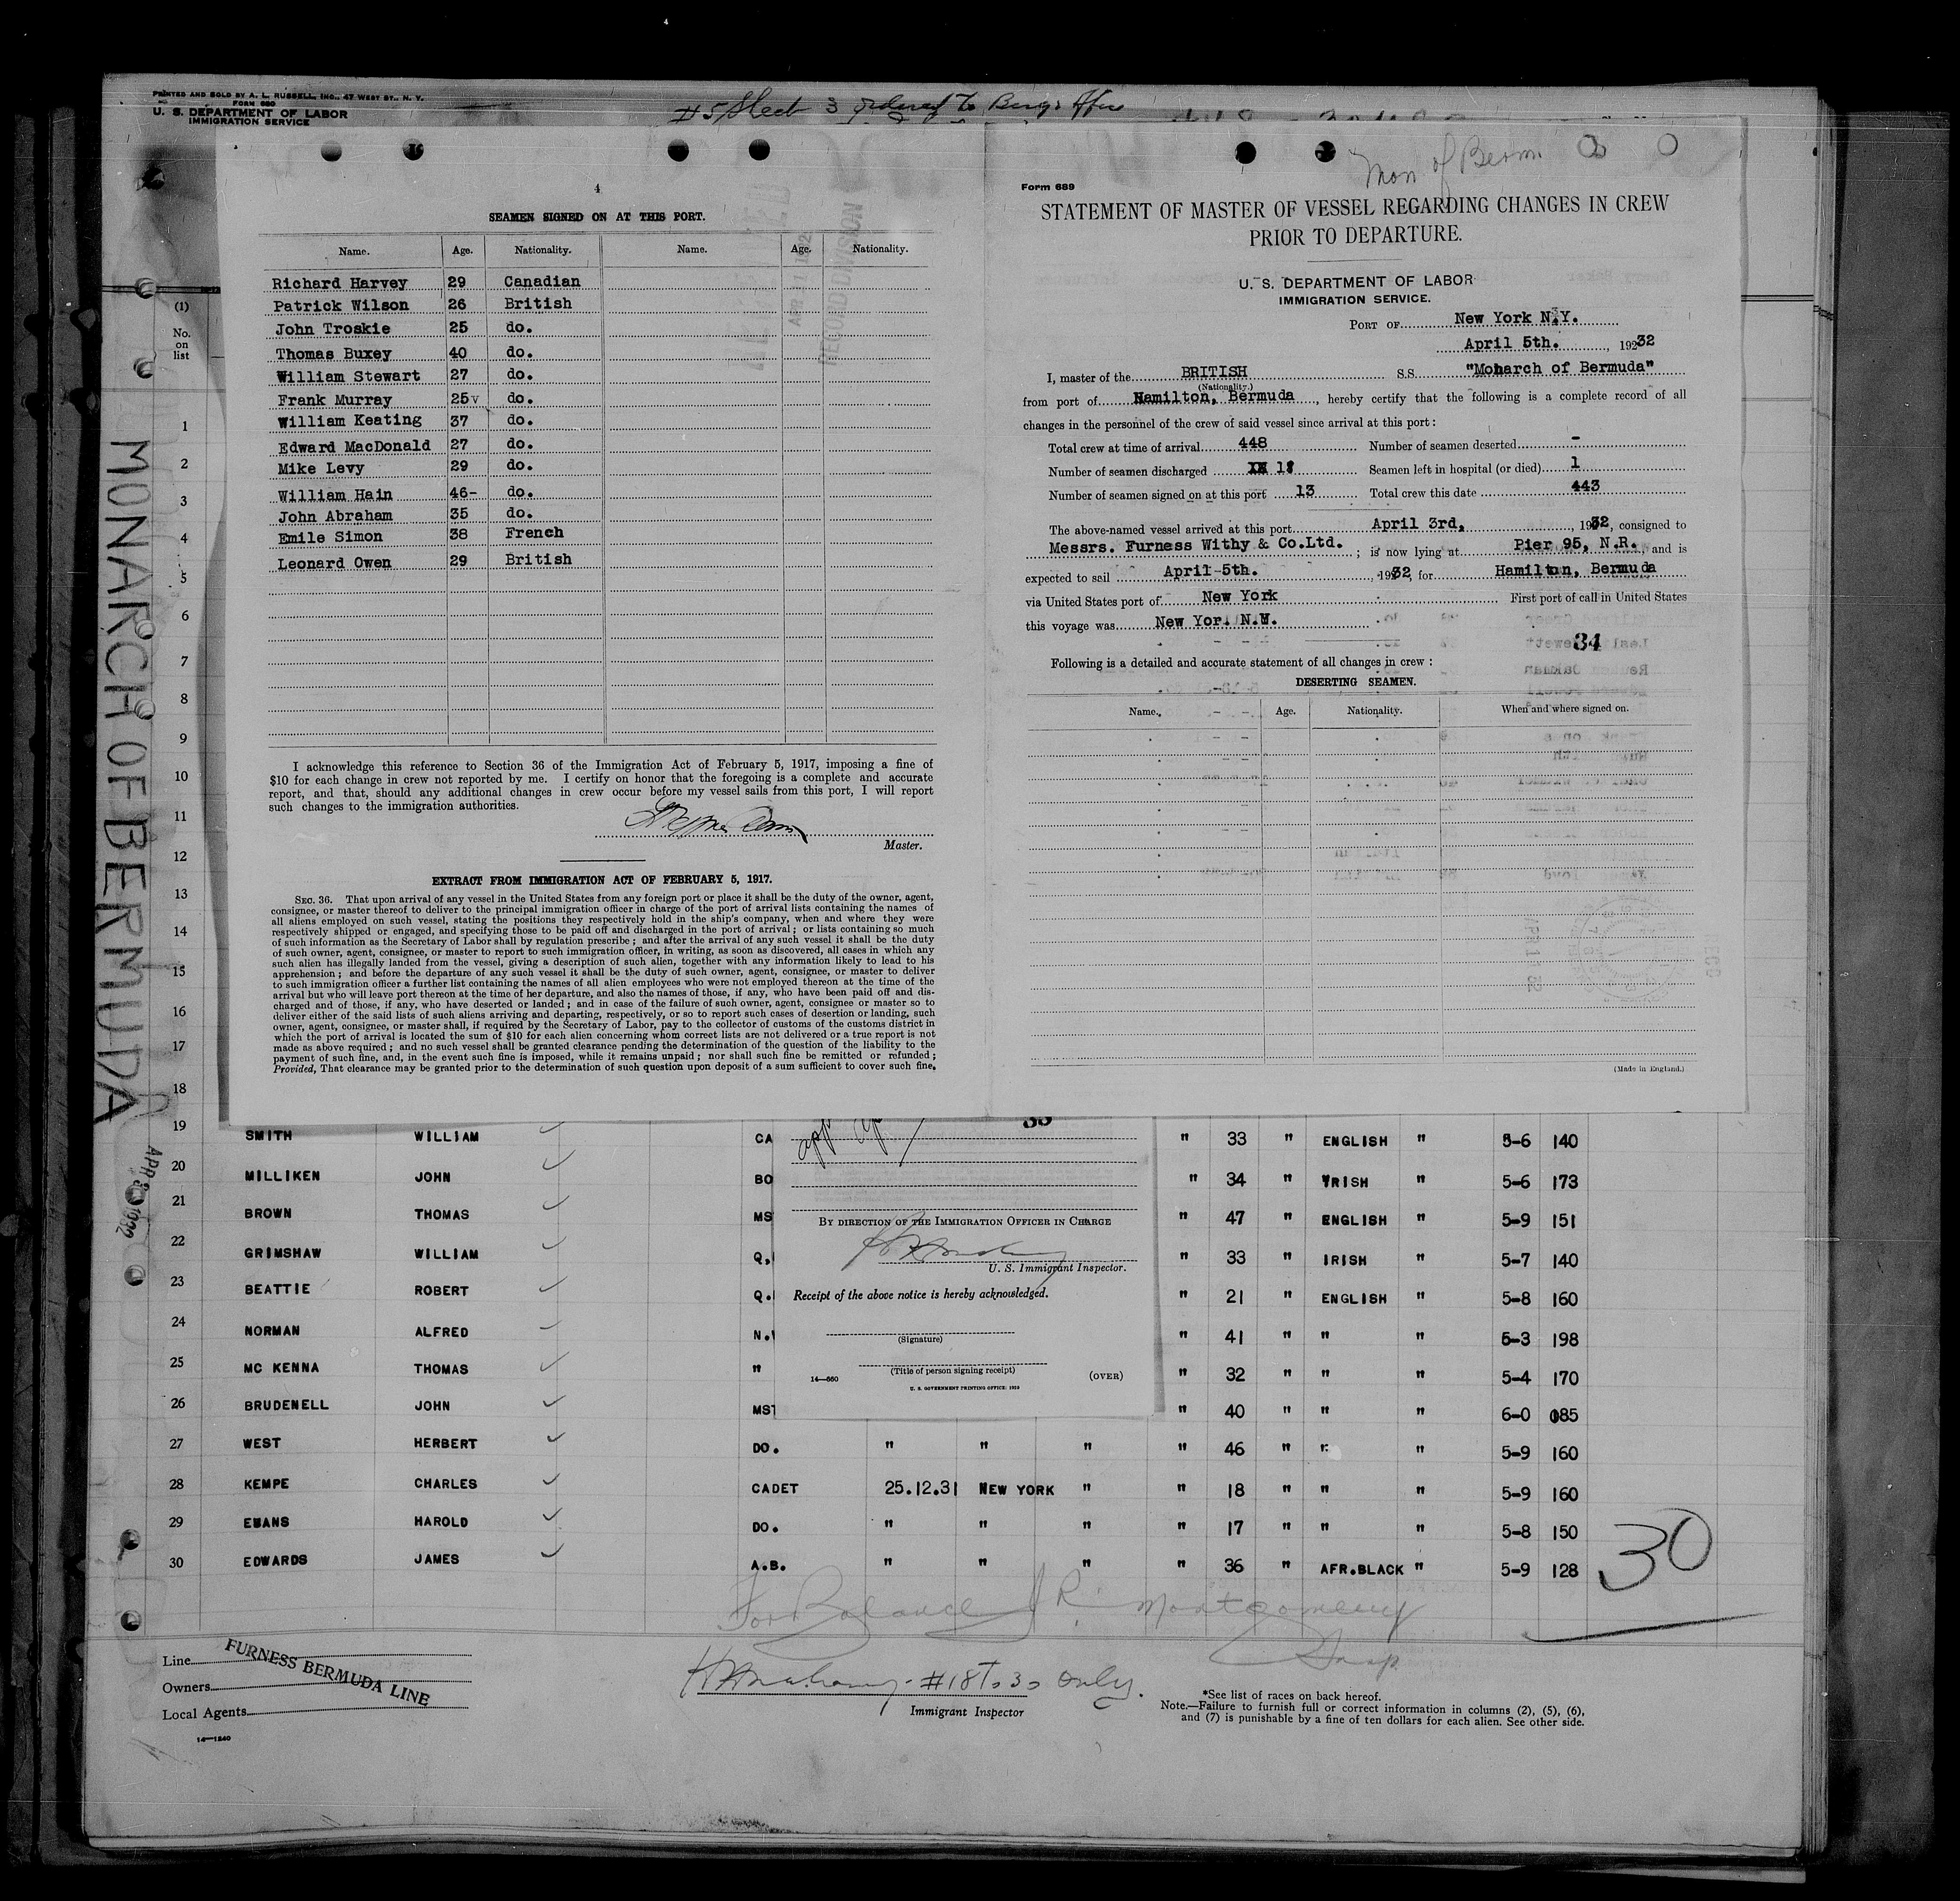 PRINTED AND SOLD BY A. L. RUSSELL, INC., 47 WEST ST., N. Y.
FORM 680
U. S. DEPARTMENT OF LABOR
IMMIGRATION SERVICE
#5 Sheet 3 ordered to
(1)
No.
on
list
MONARCH OF BERMUDA
APR 3 1932
4
SEAMEN SIGNED ON AT THIS PORT.
Name. Age. Nationality. Name. Age. Nationality.
Richard Harvey 29 Canadian
Patrick Wilson 26 British
John Troskie 25 do.
Thomas Buxey 40 do.
William Stewart 27 do.
Frank Murray 25 v do.
William Keating 37 do.
Edward MacDonald 27 do.
Mike Levy 29 do.
William Hain 46- do.
John Abraham 35 do.
Emile Simon 38 French
Leonard Owen 29 British
I acknowledge this reference to Section 36 of the Immigration Act of February 5, 1917, imposing a fine of
$10 for each change in crew not reported by me. I certify on honor that the foregoing is a complete and accurate
report, and that, should any additional changes in crew occur before my vessel sails from this port, I will report
such changes to the immigration authorities.
Master.
EXTRACT FROM IMMIGRATION ACT OF FEBRUARY 5, 1917.
SEC. 36. That upon arrival of any vessel in the United States from any foreign port or place it shall be the duty of the owner, agent,
consignee, or master thereof to deliver to the principal immigration officer in charge of the port of arrival lists containing the names of
all aliens employed on such vessel, stating the positions they respectively hold in the ship's company, when and where they were
respectively shipped or engaged, and specifying those to be paid off and discharged in the port of arrival; or lists containing so much
of such information as the Secretary of Labor shall by regulation prescribe; and after the arrival of any such vessel it shall be the duty
of such owner, agent, consignee, or master to report to such immigration officer, in writing, as soon as discovered, all cases in which any
such alien has illegally landed from the vessel, giving a description of such alien, together with any information likely to lead to his
apprehension; and before the departure of any such vessel it shall be the duty of such owner, agent, consignee, or master to deliver
to such immigration officer a further list containing the names of all alien employees who were not employed thereon at the time of the
arrival but who will leave port thereon at the time of her departure, and also the names of those, if any, who have been paid off and dis-
charged and of those, if any, who have deserted or landed; and in case of the failure of such owner, agent, consignee or master so to
deliver either of the said lists of such aliens arriving and departing, respectively, or so to report such cases of desertion or landing, such
owner, agent, consignee, or master shall, if required by the Secretary of Labor, pay to the collector of customs of the customs district in
which the port of arrival is located the sum of $10 for each alien concerning whom correct lists are not delivered or a true report is not
made as above required; and no such vessel shall be granted clearance pending the determination of the question of the liability to the
payment of such fine, and, in the event such fine is imposed, while it remains unpaid; nor shall such fine be remitted or refunded;
Provided, That clearance may be granted prior to the determination of such question upon deposit of a sum sufficient to cover such fine.
RECORD DIVISION
Mon of Berm.
Form 689
STATEMENT OF MASTER OF VESSEL REGARDING CHANGES IN CREW
PRIOR TO DEPARTURE.
U. S. DEPARTMENT OF LABOR
IMMIGRATION SERVICE.
PORT OF New York N.Y.
April 5th., 19232
I, master of the BRITISH S.S. "Monarch of Bermuda"
(Nationality.)
from port of Hamilton, Bermuda, hereby certify that the following is a complete record of all
changes in the personnel of the crew of said vessel since arrival at this port:
Total crew at time of arrival 448 Number of seamen deserted -
Number of seamen discharged Seamen left in hospital (or died) 1
Number of seamen signed on at this port 13 Total crew this date 443
The above-named vessel arrived at this port April 3rd, 1932, consigned to
Messrs. Furness Withy & Co.Ltd.; is now lying at Pier 95, N.R. and is
expected to sail April 5th., 1932, for Hamilton, Bermuda
via United States port of New York First port of call in United States
this voyage was New Yor. N.W.
34
Following is a detailed and accurate statement of all changes in crew:
DESERTING SEAMEN.
Name. Age. Nationality. When and where signed on.
(Made in England.)
1
2
3
4
5
6
7
8
9
10
11
12
13
14
15
16
17
18
19 SMITH WILLIAM CA " 33 " ENGLISH " 5-6 140
20 MILLIKEN JOHN BO " 34 " IRISH " 5-6 173
21 BROWN THOMAS MS " 47 " ENGLISH " 5-9 151
22 GRIMSHAW WILLIAM Q. " 33 " IRISH " 5-7 140
23 BEATTIE ROBERT Q. " 21 " ENGLISH " 5-8 160
24 NORMAN ALFRED N. " 41 " " " 5-3 198
25 MC KENNA THOMAS " " 32 " " " 5-4 170
26 BRUDENELL JOHN MS " 40 " " " 6-0 185
27 WEST HERBERT DO. " " " " 46 " " " 5-9 160
28 KEMPE CHARLES CADET 25.12.31 NEW YORK " " 18 " " " 5-9 160
29 EVANS HAROLD DO. " " " " 17 " " " 5-8 150
30 EDWARDS JAMES A.B. " " " " 36 " AFR.BLACK " 5-9 128
30
BY DIRECTION OF THE IMMIGRATION OFFICER IN CHARGE
U. S. Immigrant Inspector.
Receipt of the above notice is hereby acknowledged.
(Signature)
(Title of person signing receipt)
14—660 (OVER)
U. S. GOVERNMENT PRINTING OFFICE: 1928
For Balance R. Montgomery
Insp.
Line
Owners
Local Agents
FURNESS BERMUDA LINE
14—1240
#18 To 30 only.
Immigrant Inspector
*See list of races on back hereof.
Note.—Failure to furnish full or correct information in columns (2), (5), (6),
and (7) is punishable by a fine of ten dollars for each alien. See other side.